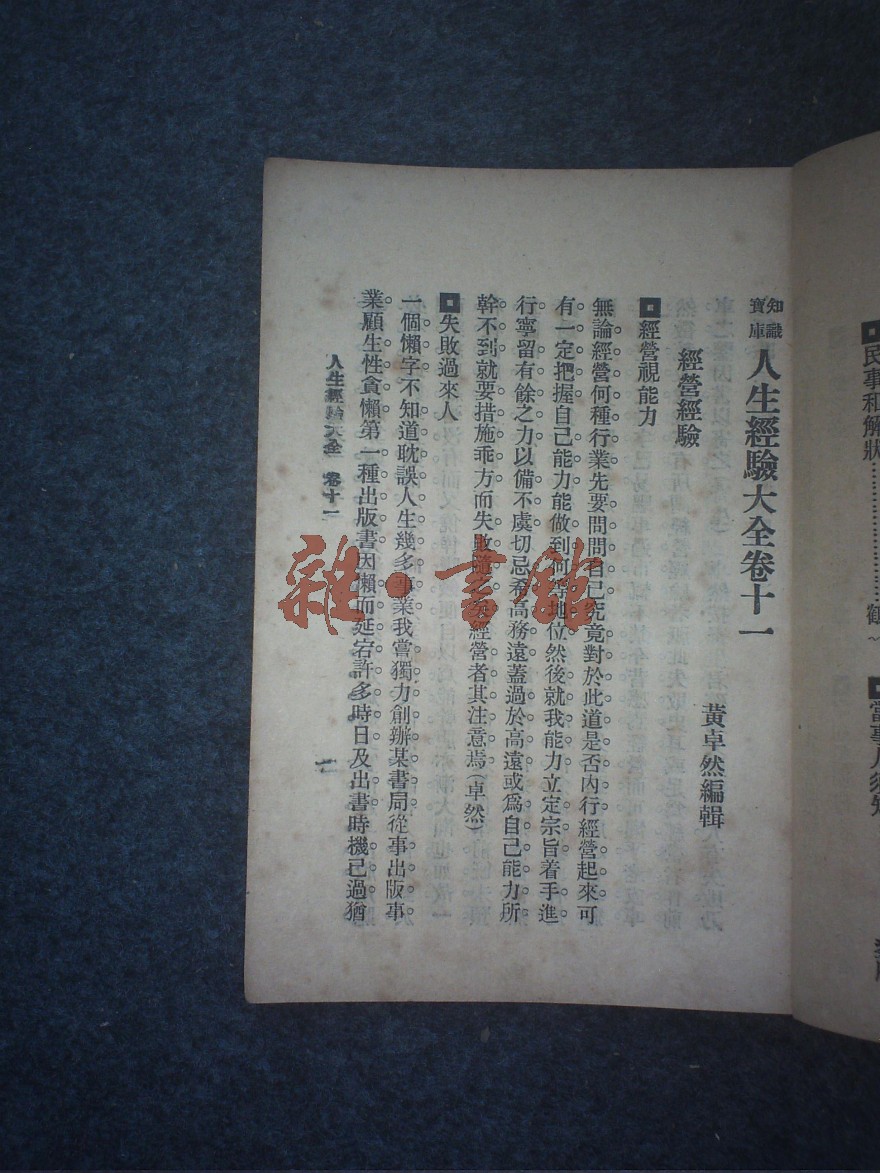 知識寶庫 人生經驗大全卷十一
黃卓然編輯
經營經驗
經營視能力
無論經營何種行業先要問問自己究竟對於此道是否內行經營起來可
有一定把握自己能力能做到何等地位然後就我能力立定宗旨着手進
行寧留有餘之力以備不虞切忌希高務遠蓋過於高遠或爲自己能力所
幹不到就要措施乖方而失敗隨之經營者其注意焉(卓然)
失敗過來人
一個懶字不知道耽誤人生幾多事業我嘗獨力創辦某書局從事出版事
業顧生性貪懶第一種出版書因懶而延宕許多時日及出書時機已過猶
人生經驗大全 卷十一
一
雜·書館
民事和解狀
當事人須知